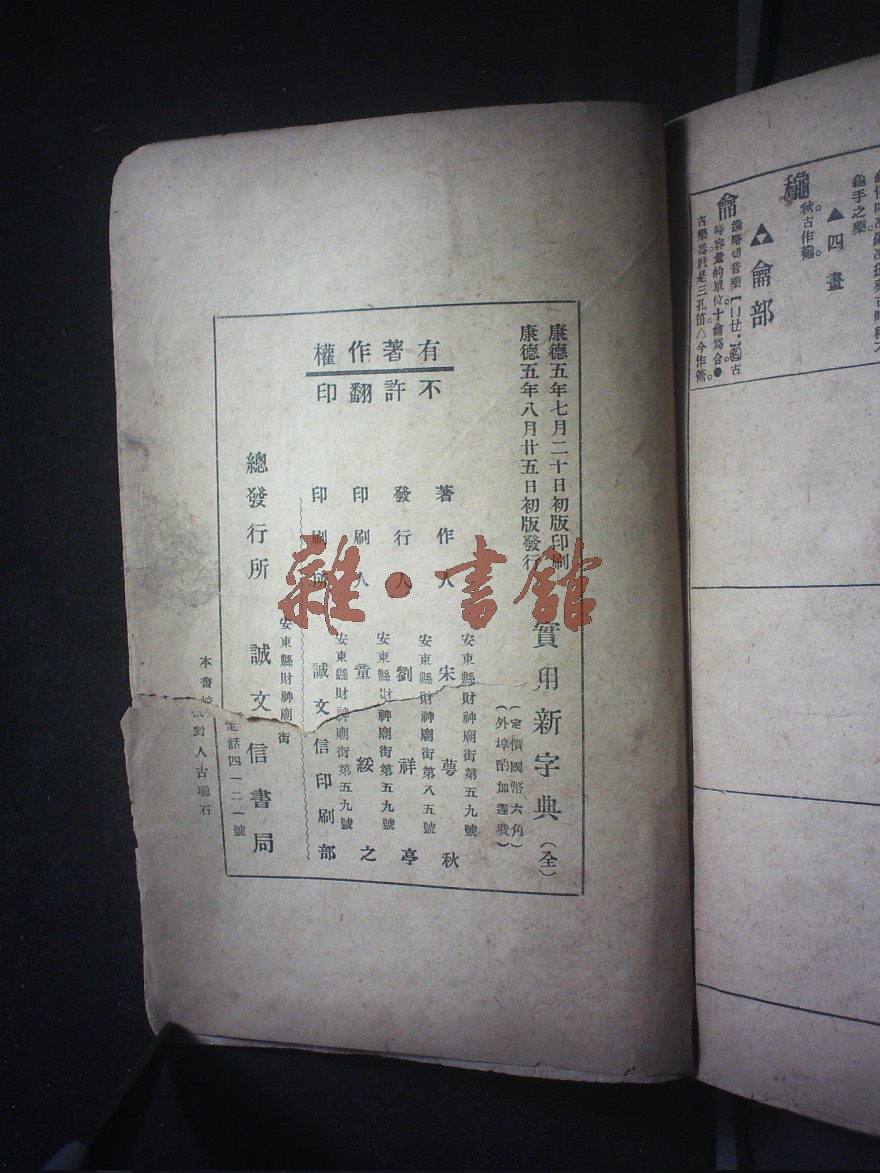 康德五年七月二十日初版印刷
康德五年八月廿五日初版發行
實用新字典(全)
(定價國幣六角)
(外埠酌加運費)
有著作權
不許翻印
著作人 宋萼秋
安東縣財神廟街第五九號
發行人 劉祥亭
安東縣財神廟街第八五號
印刷人 童綏之
安東縣財神廟街第五九號
印刷所 誠文信印刷部
安東縣財神廟街第五九號
總發行所 誠文信書局
安東縣財神廟街
電話四一二一號
本書 校對人古瑞石
雜·書館
龜手之藥
▲四畫
龝
秋古作龝。
▲龠部
龠
時容量的單位十龠爲合●
古樂器就是三孔笛△今作籥。